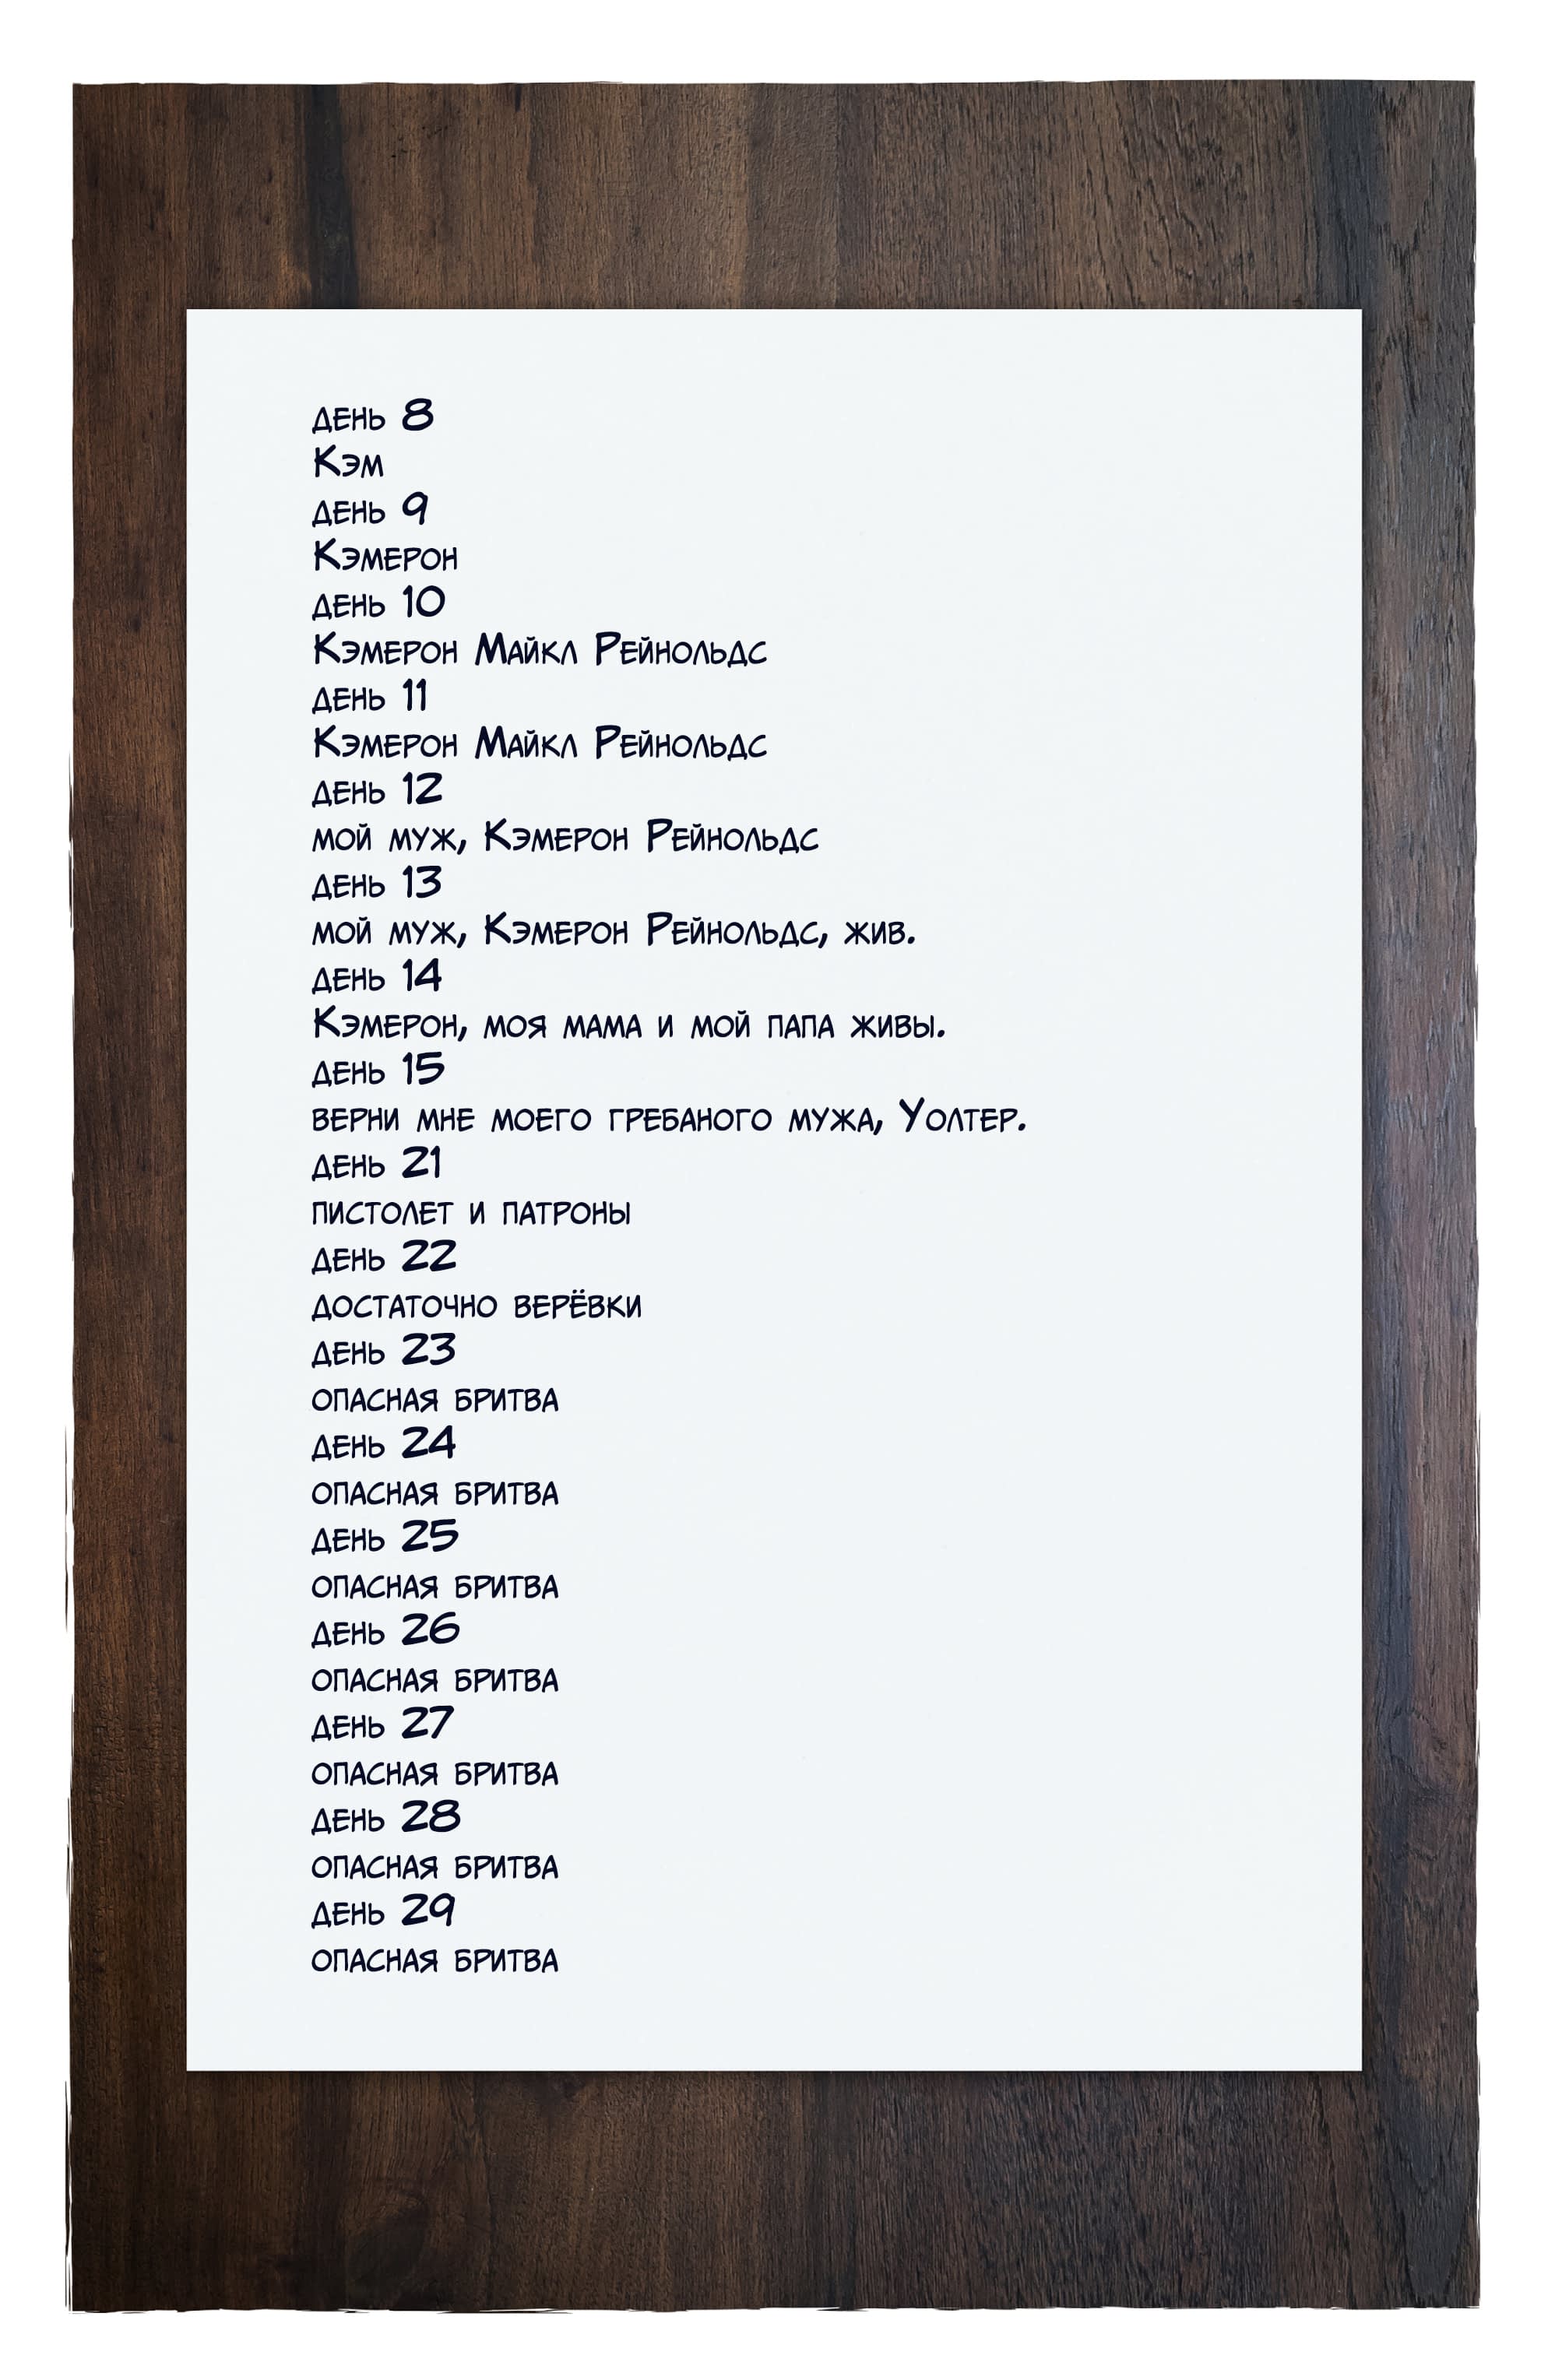 день 8
Кэм
день 9
Кэмерон
день 10
Кэмерон Майкл Рейнольдс
день 11
Кэмерон Майкл Рейнольдс
день 12
мой муж, Кэмерон Рейнольдс
день 13
мой муж, Кэмерон Рейнольдс, жив.
день 14
Кэмерон, моя мама и мой папа живы.
день 15
верни мне моего гребаного мужа, Уолтер.
день 21
пистолет и патроны
день 22
достаточно верёвки
день 23
опасная бритва
день 24
опасная бритва
день 25
опасная бритва
день 26
опасная бритва
день 27
опасная бритва
день 28
опасная бритва
день 29
опасная бритва